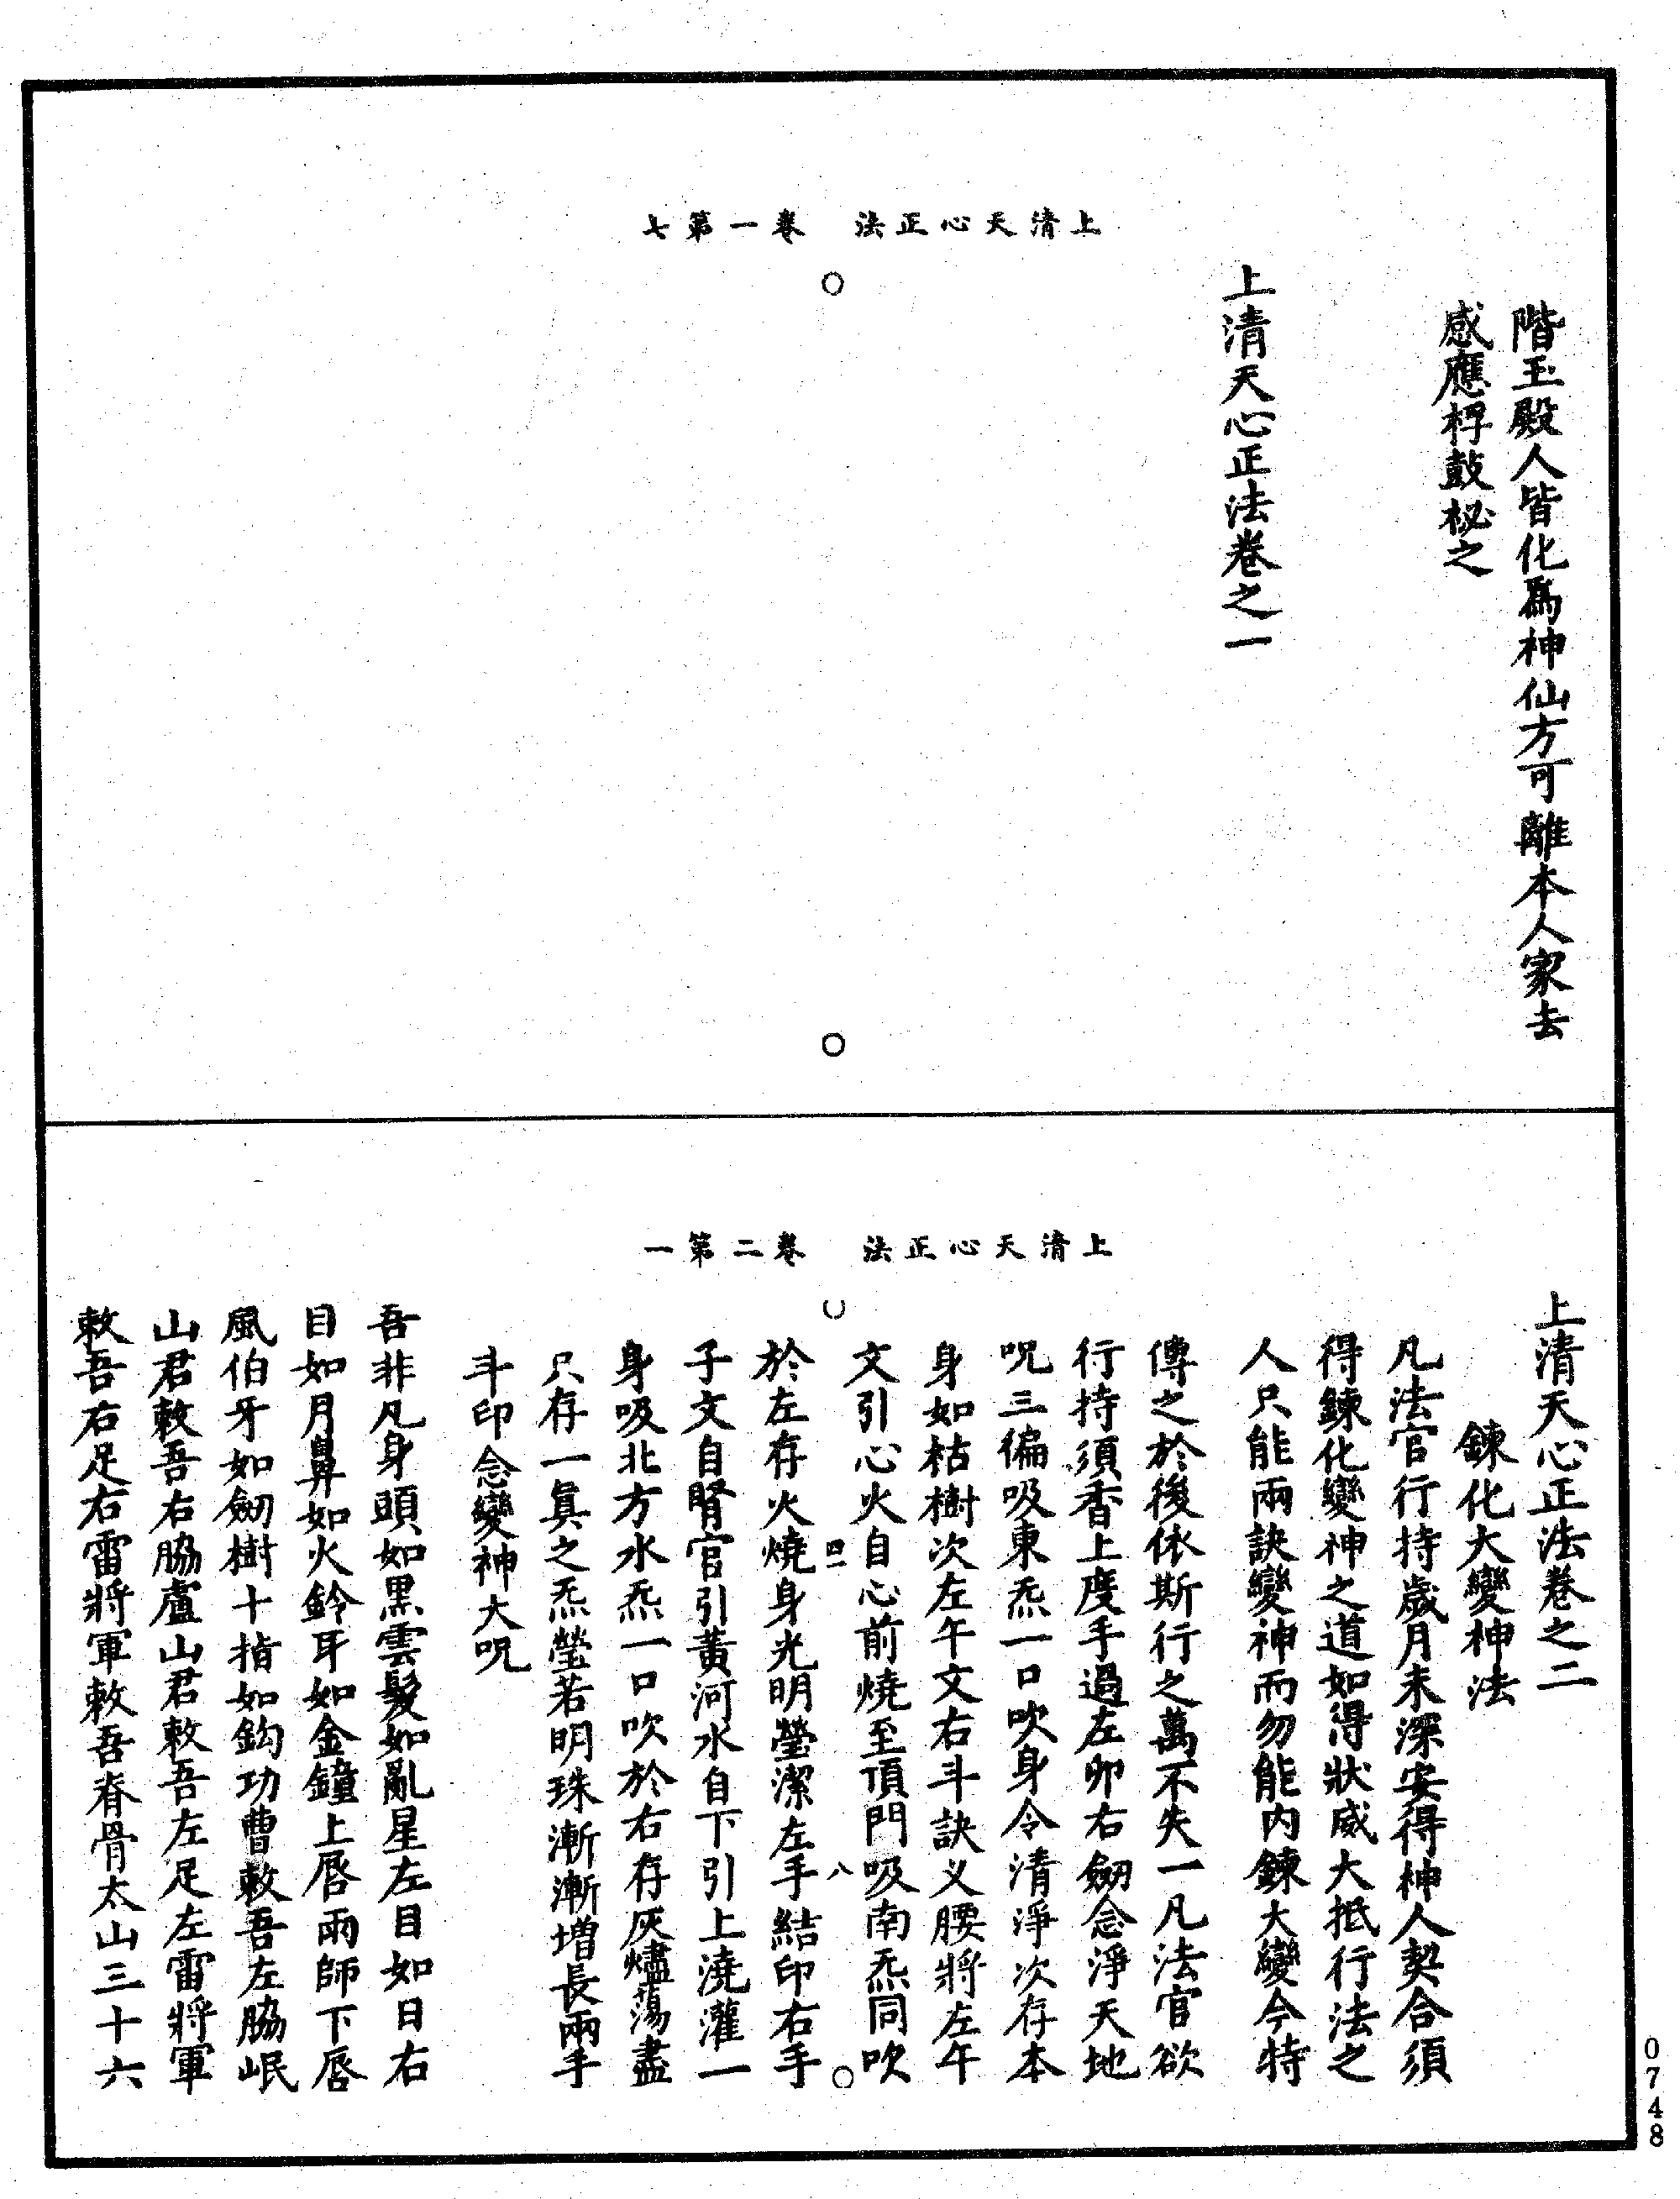 上清天心正法　卷一第七
階玉殿人皆化爲神仙方可離本人家去
感應桴鼓祕之
上清天心正法卷之一
上清天心正法　卷二第一
上清天心正法卷之二
鍊化大變神法
凡法官行持歲月未深安得神人契合須
得鍊化變神之道如得狀威大抵行法之
人只能兩訣變神而勿能内鍊大變今特
傳之於後依斯行之萬不失一凡法官欲
行持須香上度手過左卯右劒念淨天地
呪三徧吸東炁一口吹身令清淨次存本
身如枯樹次左午文右斗訣义腰將左午
文引心火自心前燒至頂門吸南炁同吹
四一　八
於左存火燒身光明瑩潔左手結印右手
子文自腎宮引黃河水自下引上澆灌一
身吸北方水炁一口吹於右存灰燼蕩盡
只存一眞之炁瑩若明珠漸漸増長兩手
斗印念變神大呪
吾非凡身頭如黒雲髮如亂星左目如日右
目如月鼻如火鈴耳如金鐘上唇雨師下唇
風伯牙如劒樹十指如鈎功曹敕吾左脇岷
山君敕吾右脇廬山君敕吾左足左雷將軍
敕吾右足右雷將軍敕吾脊骨太山三十六
0748